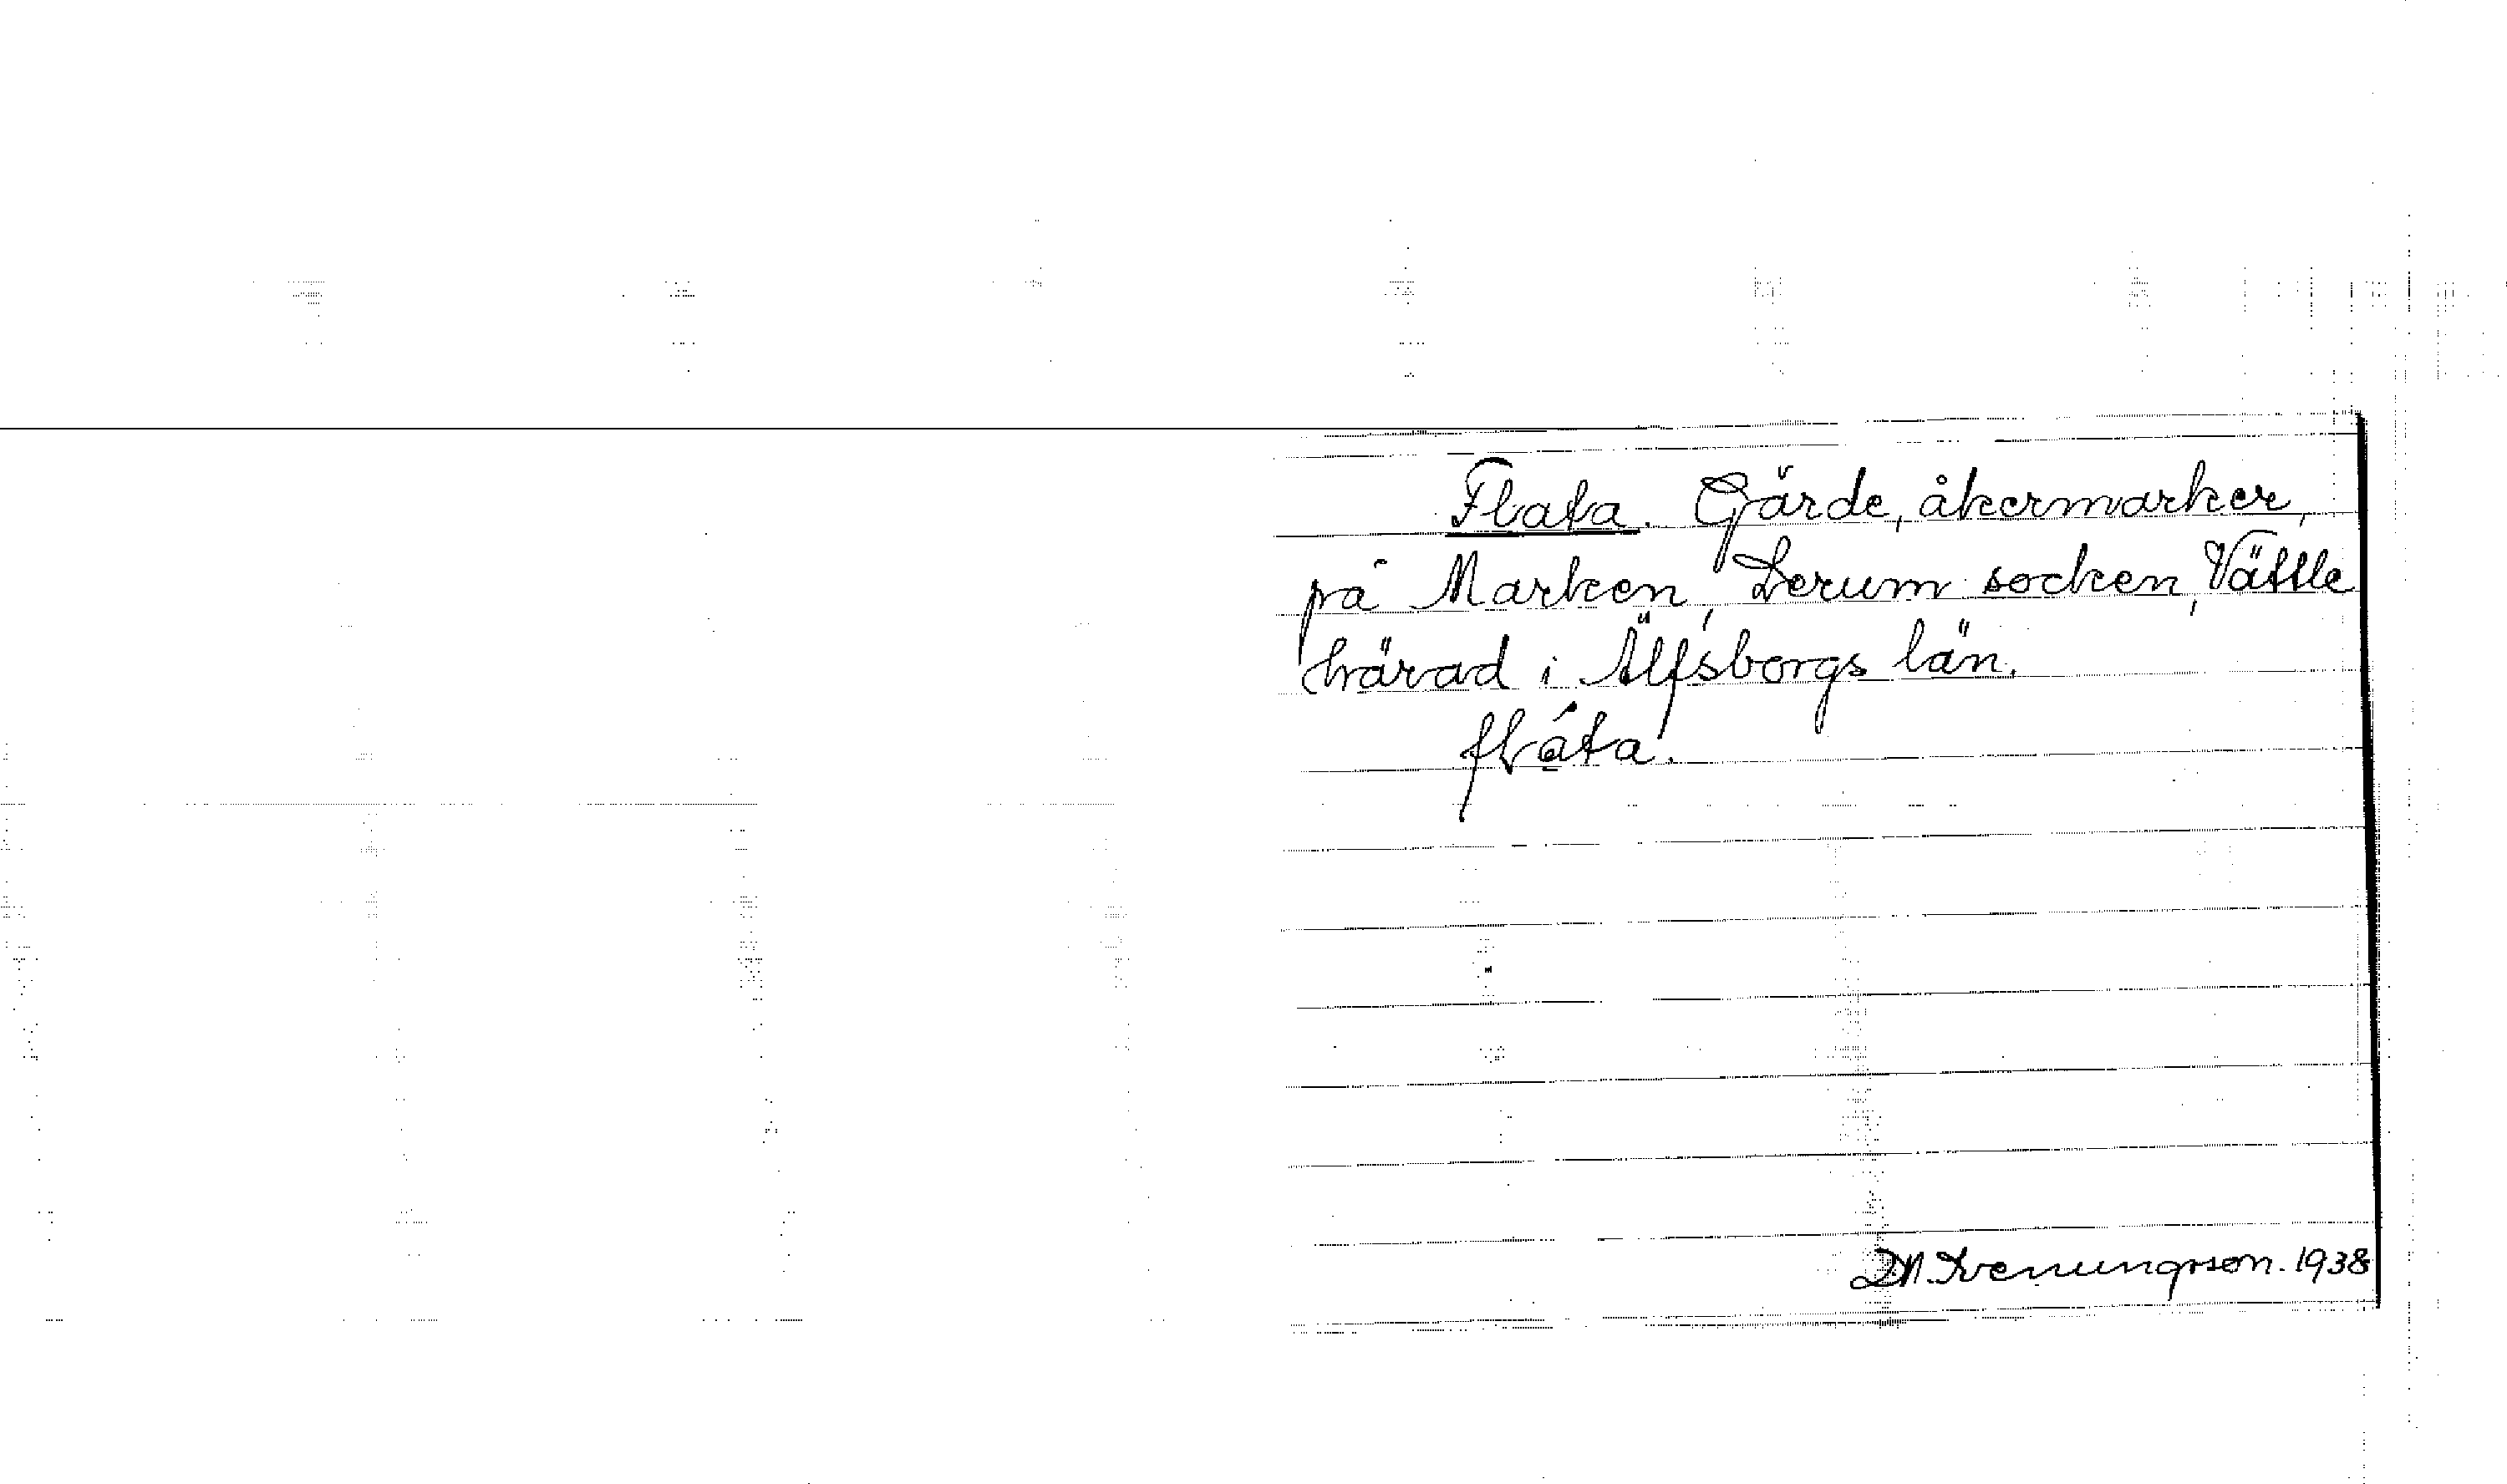 Flata. Gärde, åkermarker,
på Marken, Lerum socken, Vättle
härad i Älfsborgs län.
flata.
D.N. Kvenungsson. 1938